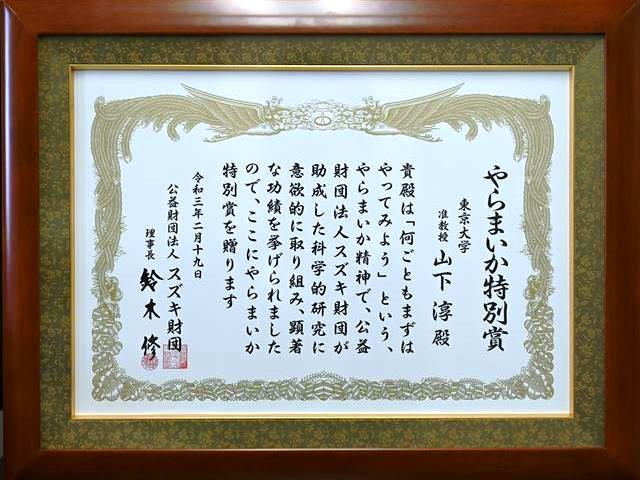 やらまいか特別賞
東京大学
准教授 山下 淳 殿
貴殿は「何ごともまずは
やってみよう」という、
やらまいか精神で、公益
財団法人スズキ財団が
助成した科学的研究に
意欲的に取り組み、顕著
な功績を挙げられました
ので、ここにやらまいか
特別賞を贈ります
令和三年二月十九日
公益財団法人 スズキ財団
理事長 鈴木 修